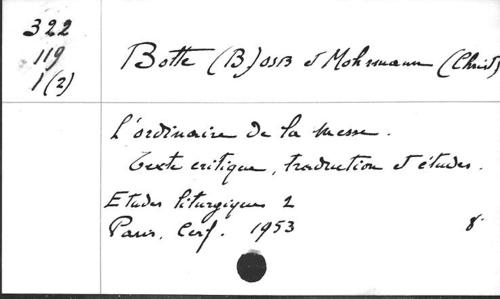 322
119
1(2)
Botte (B) OSB et Mohrmann (Christ)
L'ordinaire de la messe.
Texte critique, traduction et études.
Etudes liturgiques 2
Paris, Cerf. 1953 8°